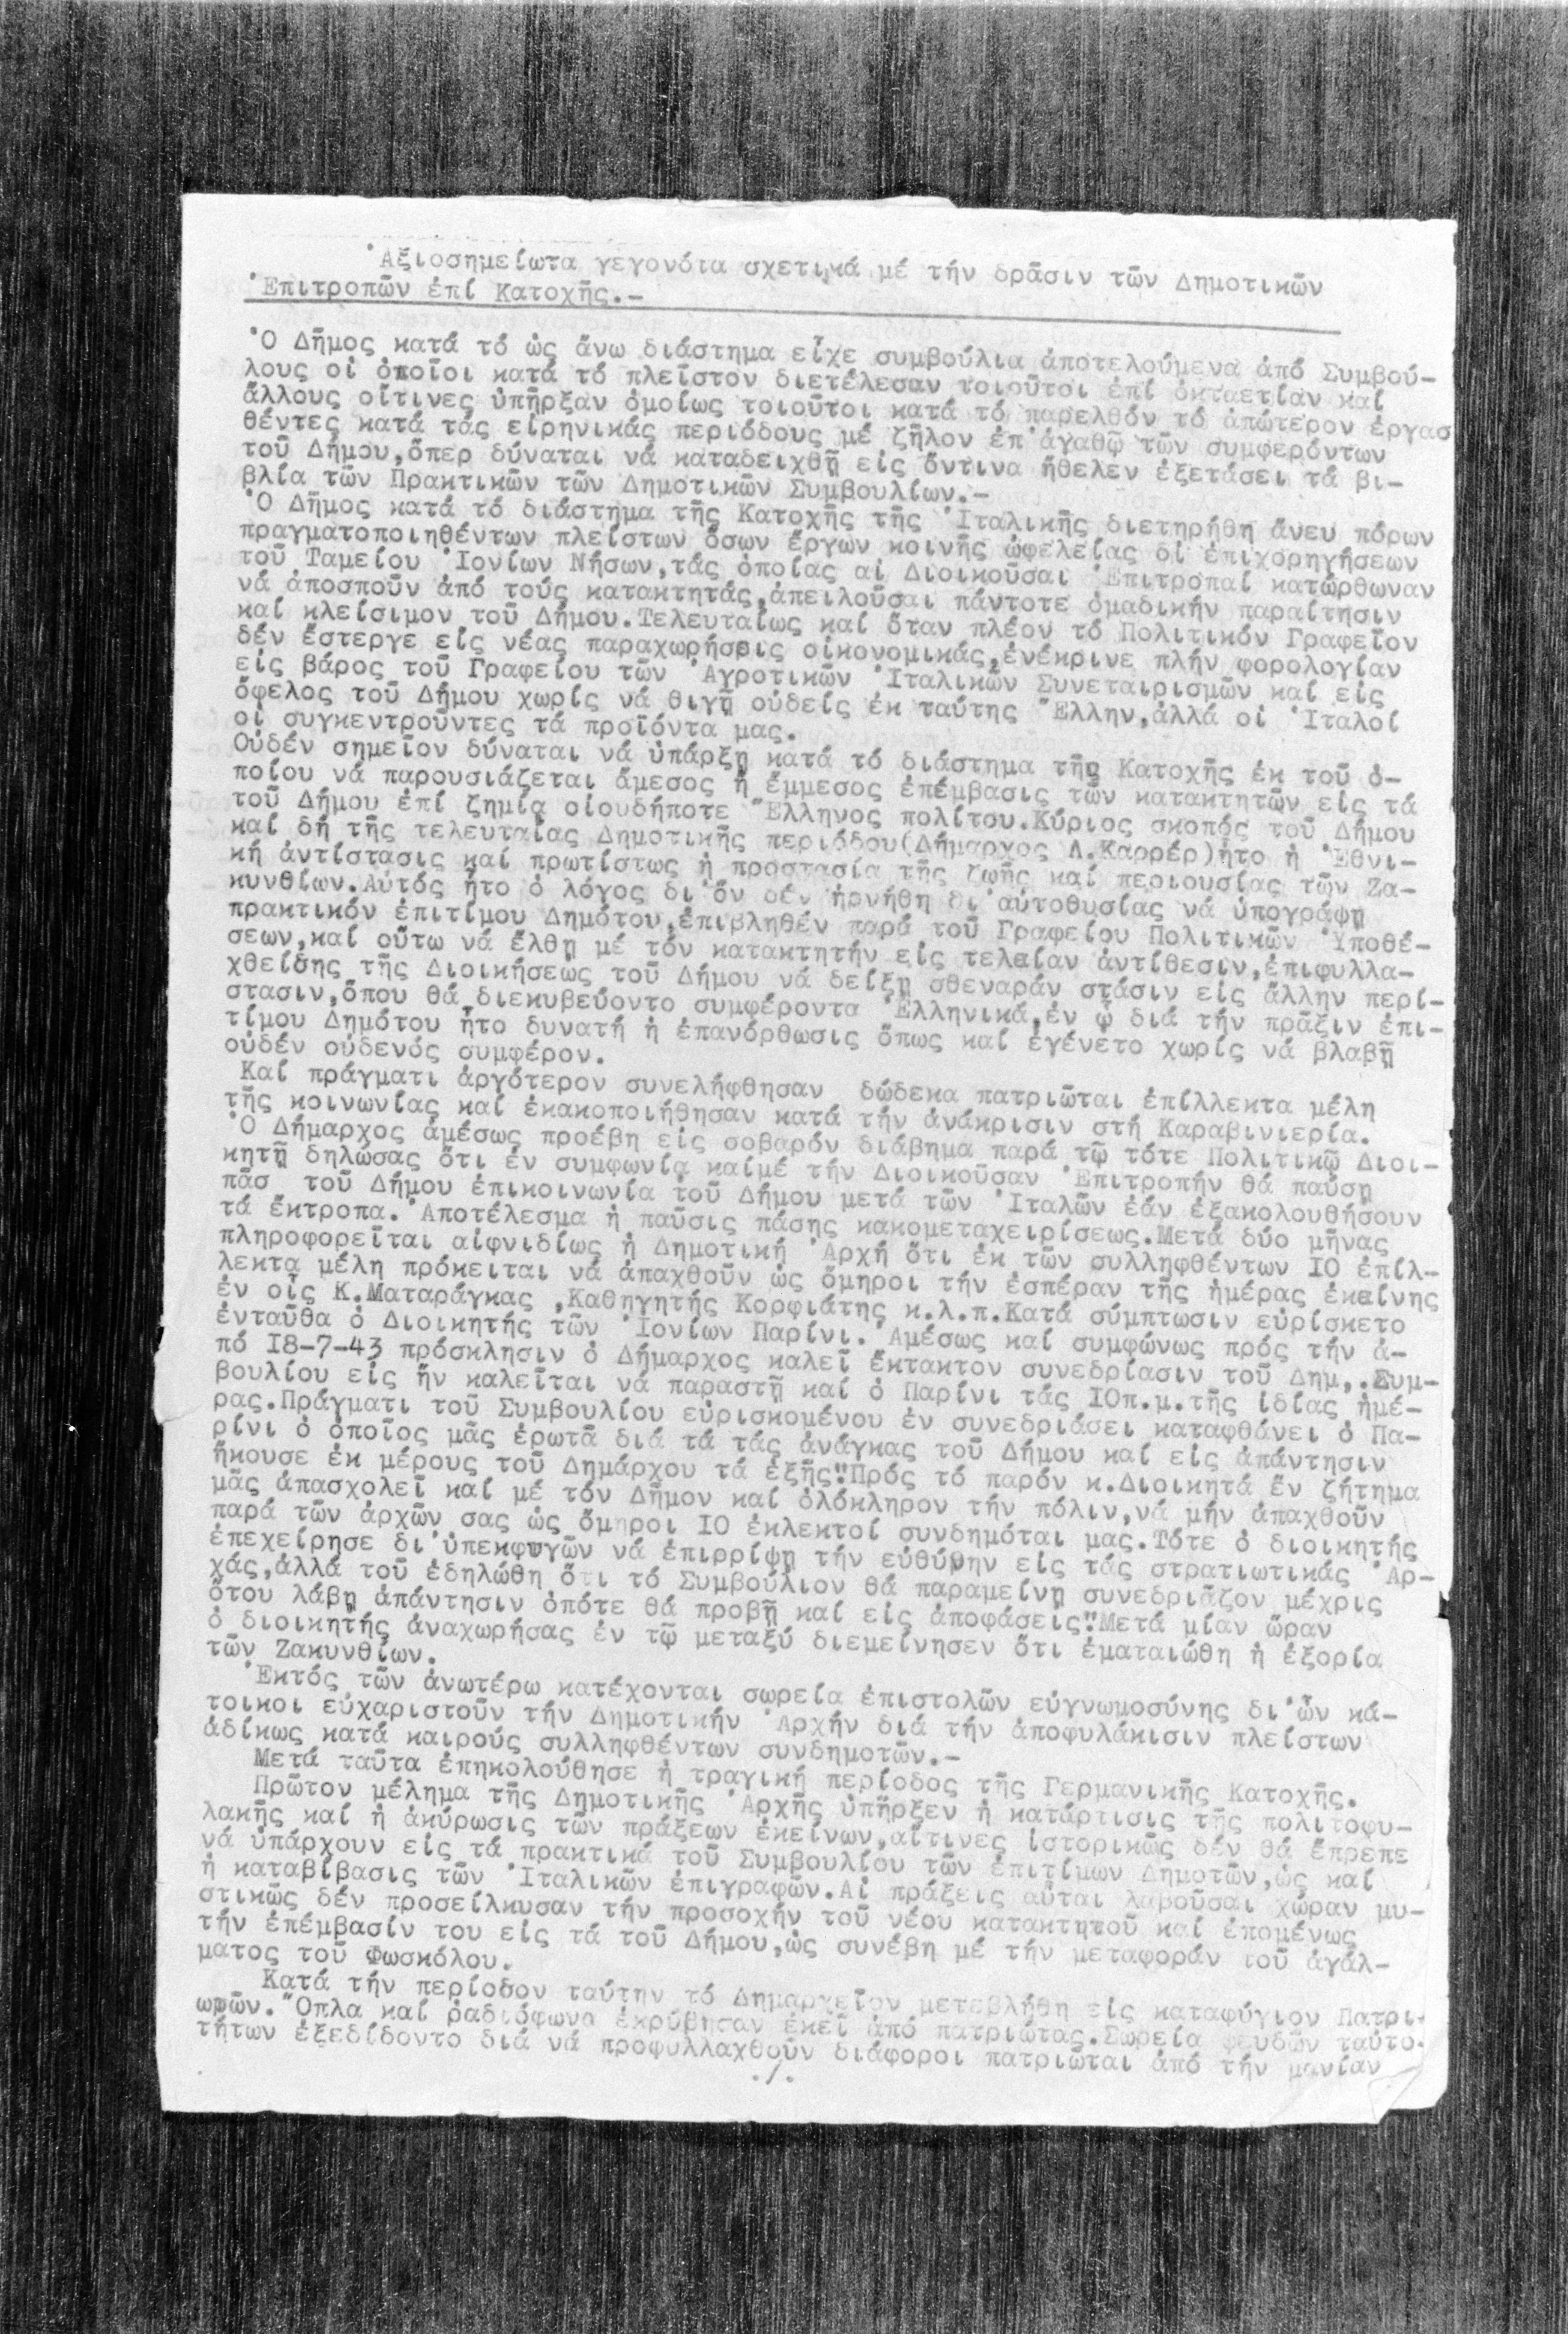 Ἀξιοσημείωτα γεγονότα σχετικά μέ τήν δρᾶσιν τῶν Δημοτικῶν
Ἐπιτροπῶν ἐπί Κατοχῆς.-
Ὁ Δῆμος κατά τό ὡς ἄνω διάστημα εἶχε συμβούλια ἀποτελούμενα ἀπό Συμβού-
λους οἱ ὁποῖοι κατά τό πλεῖστον διετέλεσαν τοιοῦτοι ἐπί ὀκταετίαν καί
ἄλλους οἵτινες ὑπῆρξαν ὁμοίως τοιοῦτοι κατά τό παρελθόν τό ἀπώτερον ἐργασ
θέντες κατά τάς εἰρηνικάς περιόδους μέ ζῆλον ἐπ'ἀγαθῷ τῶν συμφερόντων
τοῦ Δήμου,ὅπερ δύναται νά καταδειχθῇ εἰς ὅντινα ἤθελεν ἐξετάσει τά βι-
βλία τῶν Πρακτικῶν τῶν Δημοτικῶν Συμβουλίων.-
Ὁ Δῆμος κατά τό διάστημα τῆς Κατοχῆς τῆς Ἰταλικῆς διετηρήθη ἄνευ πόρων
πραγματοποιηθέντων πλείστων ὅσων ἔργων κοινῆς ὠφελείας δι ἐπιχορηγήσεων
τοῦ Ταμείου Ἰονίων Νήσων,τάς ὁποίας αἱ Διοικοῦσαι Ἐπιτροπαί κατώρθωναν
νά ἀποσποῦν ἀπό τούς κατακτητάς,ἀπειλοῦσαι πάντοτε ὁμαδικήν παραίτησιν
καί κλείσιμον τοῦ Δήμου.Τελευταίως καί ὅταν πλέον τό Πολιτικόν Γραφεῖον
δέν ἔστεργε εἰς νέας παραχωρήσεις οἰκονομικάς,ἐνέκρινε πλήν φορολογίαν
εἰς βάρος τοῦ Γραφείου τῶν Ἀγροτικῶν Ἰταλικῶν Συνεταιρισμῶν καί εἰς
ὄφελος τοῦ Δήμου χωρίς νά θιγῇ οὐδείς ἐκ ταύτης Ἕλλην,ἀλλά οἱ Ἰταλοί
οἱ συγκεντροῦντες τά προϊόντα μας.
Οὐδέν σημεῖον δύναται νά ὑπάρξῃ κατά τό διάστημα τῆς Κατοχῆς ἐκ τοῦ ὁ-
ποίου νά παρουσιάζεται ἄμεσος ἤ ἔμμεσος ἐπέμβασις τῶν κατακτητῶν εἰς τά
τοῦ Δήμου ἐπί ζημίᾳ οἱουδήποτε Ἕλληνος πολίτου.Κύριος σκοπός τοῦ Δήμου
καί δή τῆς τελευταίας Δημοτικῆς περιόδου(Δήμαρχος Λ.Καρρέρ)ἦτο ἡ Ἐθνι-
κή ἀντίστασις καί πρωτίστως ἡ προστασία τῆς ζωῆς καί περιουσίας τῶν Ζα-
κυνθίων.Αὐτός ἦτο ὁ λόγος δι'ὅν δέν ἠρνήθη δι'αὐτοθυσίας νά ὑπογράψῃ
πρακτικόν ἐπιτίμου Δημότου,ἐπιβληθέν παρά τοῦ Γραφείου Πολιτικῶν Ὑποθέ-
σεων,καί οὕτω νά ἔλθῃ μέ τόν κατακτητήν εἰς τελείαν ἀντίθεσιν,ἐπιφυλλα-
χθείσης τῆς Διοικήσεως τοῦ Δήμου νά δείξῃ σθεναράν στάσιν εἰς ἄλλην περί-
στασιν,ὅπου θά διεκυβεύοντο συμφέροντα Ἑλληνικά,ἐν ᾧ διά τήν πρᾶξιν ἐπι-
τίμου Δημότου ἦτο δυνατή ἡ ἐπανόρθωσις ὅπως καί ἐγένετο χωρίς νά βλαβῇ
οὐδέν οὐδενός συμφέρον.
Καί πράγματι ἀργότερον συνελήφθησαν δώδεκα πατριῶται ἐπίλλεκτα μέλη
τῆς κοινωνίας καί ἐκακοποιήθησαν κατά τήν ἀνάκρισιν στή Καραβινιερία.
Ὁ Δήμαρχος ἀμέσως προέβη εἰς σοβαρόν διάβημα παρά τῷ τότε Πολιτικῷ Διοι-
κητῇ δηλώσας ὅτι ἐν συμφωνίᾳ καίμέ τήν Διοικοῦσαν Ἐπιτροπήν θά παύσῃ
πᾶσ τοῦ Δήμου ἐπικοινωνία τοῦ Δήμου μετά τῶν Ἰταλῶν ἐάν ἐξακολουθήσουν
τά ἔκτροπα. Ἀποτέλεσμα ἡ παῦσις πάσης κακομεταχειρίσεως.Μετά δύο μῆνας
πληροφορεῖται αἰφνιδίως ἡ Δημοτική Ἀρχή ὅτι ἐκ τῶν συλληφθέντων 10 ἐπίλ-
λεκτα μέλη πρόκειται νά ἀπαχθοῦν ὡς ὅμηροι τήν ἑσπέραν τῆς ἡμέρας ἐκείνης
ἐν οἷς Κ.Ματαράγκας ,Καθηγητής Κορφιάτης κ.λ.π.Κατά σύμπτωσιν εὑρίσκετο
ἐνταῦθα ὁ Διοικητής τῶν Ἰονίων Παρίνι. Ἀμέσως καί συμφώνως πρός τήν ἀ-
πό 18-7-43 πρόσκλησιν ὁ Δήμαρχος καλεῖ ἔκτακτον συνεδρίασιν τοῦ Δημ,.Συμ-
βουλίου εἰς ἥν καλεῖται νά παραστῇ καί ὁ Παρίνι τάς 10π.μ.τῆς ἰδίας ἡμέ-
ρας.Πράγματι τοῦ Συμβουλίου εὑρισκομένου ἐν συνεδριάσει καταφθάνει ὁ Πα-
ρίνι ὁ ὁποῖος μᾶς ἐρωτᾶ διά τά τάς ἀνάγκας τοῦ Δήμου καί εἰς ἀπάντησιν
ἤκουσε ἐκ μέρους τοῦ Δημάρχου τά ἑξῆς"Πρός τό παρόν κ.Διοικητά ἕν ζήτημα
μᾶς ἀπασχολεῖ καί μέ τόν Δῆμον καί ὁλόκληρον τήν πόλιν,νά μήν ἀπαχθοῦν
παρά τῶν ἀρχῶν σας ὡς ὅμηροι 10 ἐκλεκτοί συνδημόται μας.Τότε ὁ διοικητής
ἐπεχείρησε δι'ὑπεκφυγῶν νά ἐπιρρίψῃ τήν εὐθύνην εἰς τάς στρατιωτικάς Ἀρ-
χάς,ἀλλά τοῦ ἐδηλώθη ὅτι τό Συμβούλιον θά παραμείνῃ συνεδριᾶζον μέχρις
ὅτου λάβῃ ἀπάντησιν ὁπότε θά προβῇ καί εἰς ἀποφάσεις"Μετά μίαν ὥραν
ὁ διοικητής ἀναχωρήσας ἐν τῷ μεταξύ διεμείνησεν ὅτι ἐματαιώθη ἡ ἐξορία
τῶν Ζακυνθίων.
Ἐκτός τῶν ἀνωτέρω κατέχονται σωρεία ἐπιστολῶν εὐγνωμοσύνης δι'ὧν κά-
τοικοι εὐχαριστοῦν τήν Δημοτικήν Ἀρχήν διά τήν ἀποφυλάκισιν πλείστων
ἀδίκως κατά καιρούς συλληφθέντων συνδημοτῶν.-
Μετά ταῦτα ἐπηκολούθησε ἡ τραγική περίοδος τῆς Γερμανικῆς Κατοχῆς.
Πρῶτον μέλημα τῆς Δημοτικῆς Ἀρχῆς ὑπῆρξεν ἡ κατάρτισις τῆς πολιτοφυ-
λακῆς καί ἡ ἀκύρωσις τῶν πράξεων ἐκείνων,αἵτινες ἱστορικῶς δέν θά ἔπρεπε
νά ὑπάρχουν εἰς τά πρακτικά τοῦ Συμβουλίου τῶν ἐπιτίμων Δημοτῶν,ὡς καί
ἡ καταβίβασις τῶν Ἰταλικῶν ἐπιγραφῶν.Αἱ πράξεις αὗται λαβοῦσαι χώραν μυ-
στικῶς δέν προσείλκυσαν τήν προσοχήν τοῦ νέου κατακτητοῦ καί ἑπομένως
τήν ἐπέμβασίν του εἰς τά τοῦ Δήμου,ὡς συνέβη μέ τήν μεταφοράν τοῦ ἀγάλ-
ματος τοῦ Φωσκόλου.
Κατά τήν περίοδον ταύτην τό Δημαρχεῖον μετεβλήθη εἰς καταφύγιον Πατρι-
ωτῶν. Ὅπλα καί ραδιόφωνα ἐκρύβησαν ἐκεῖ ἀπό πατριώτας.Σωρεία ψευδῶν ταὐτο-
τήτων ἐξεδίδοντο διά νά προφυλλαχθοῦν διάφοροι πατριῶται ἀπό τήν μανίαν
./.